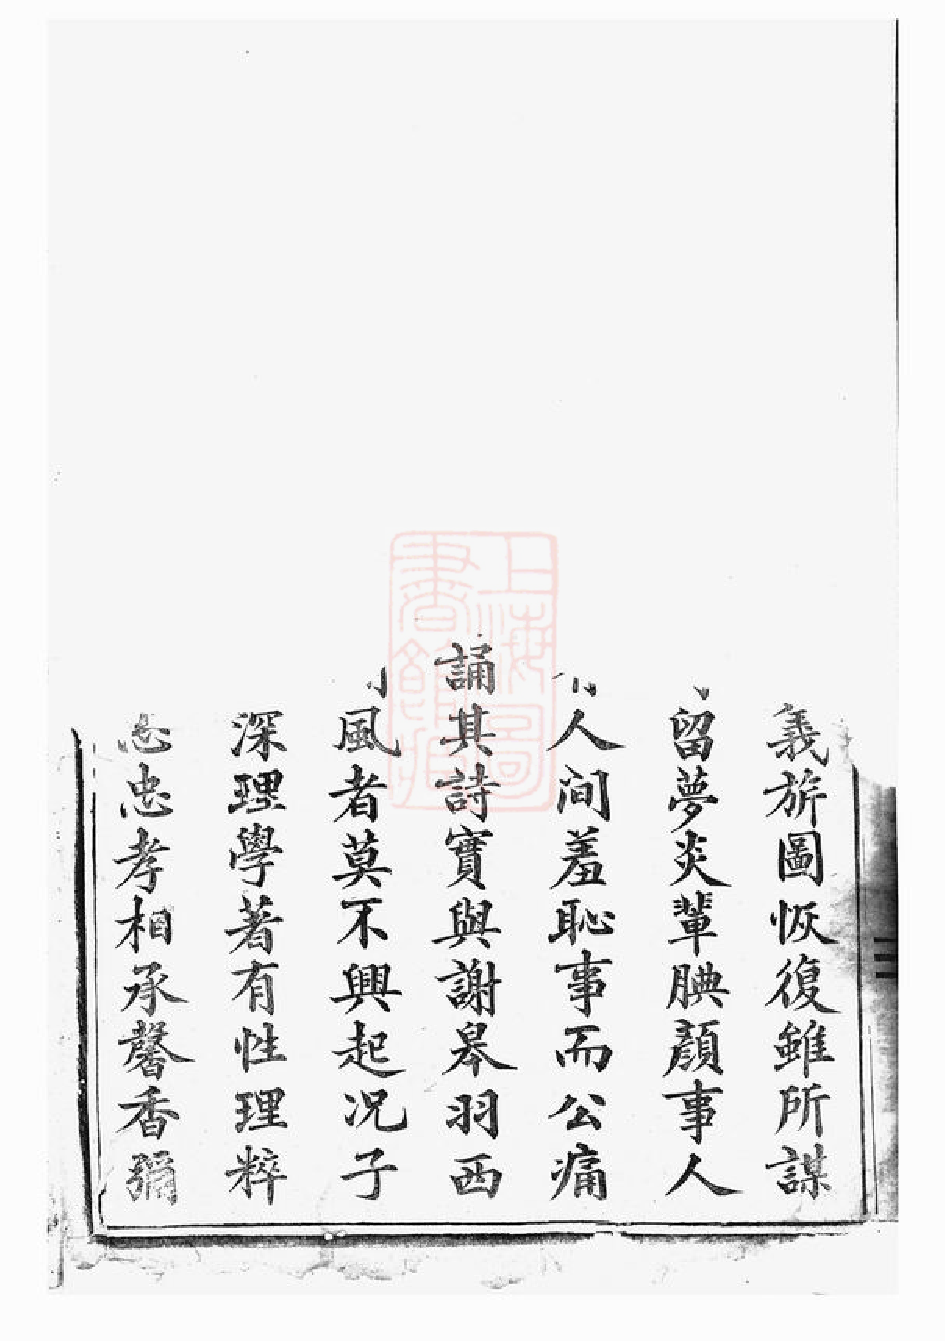 義旂圖恢復雖所謀
留夢炎輩腆顏事人
人间羞恥事而公痛
誦其詩實與謝皋羽西
風者莫不興起况子
深理學著有性理粹
忠孝相承馨香彌
上海圖書館藏